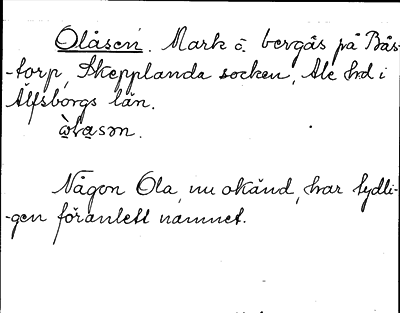 Olåsen. Mark o. bergås på Bås-
-torp, Skepplanda socken, Ale hd i
Älfsborgs län.

Någon Ola, nu okänd, har tydli-
-gen föranlett namnet.